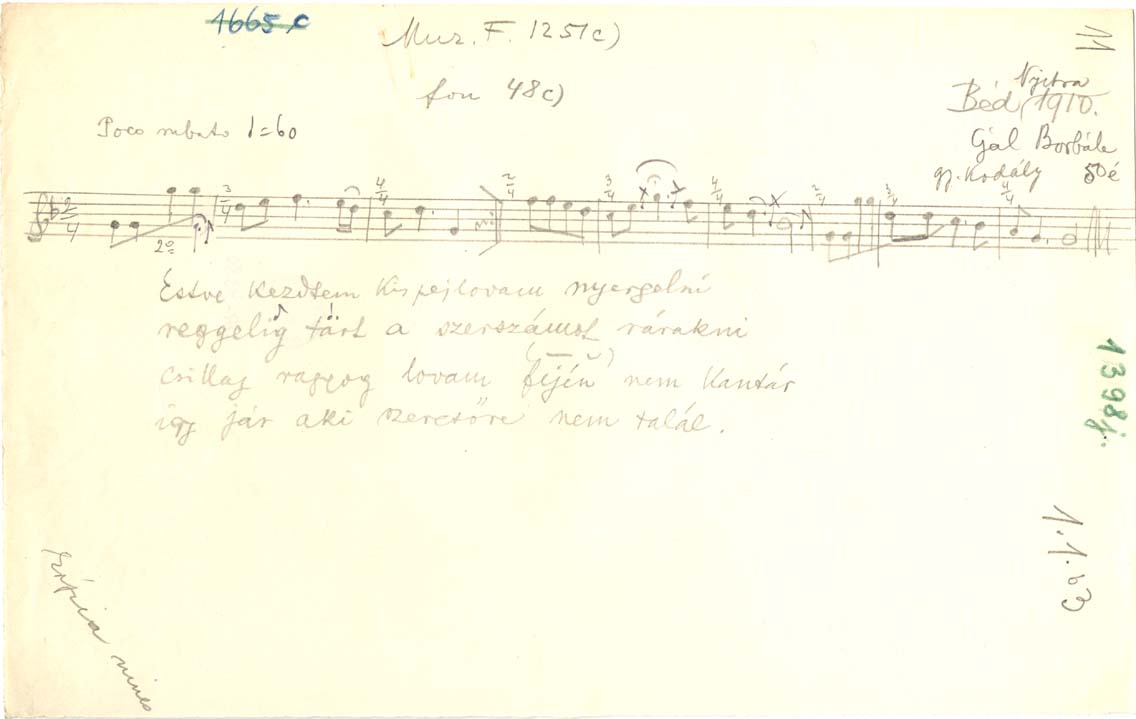 1665 c
Muz. F. 1251c)
11
fon 48c)
Nyitra
Béd, 1910.
Gál Borbála
50é
gy. Kodály
Poco rubato ♩=60
2/4 3/4 4/4 2/4 3/4 4/4 2/4 3/4 4/4
2º
Estve kezdtem kis pejlovam nyergelni
reggelig tárt a szerszámot rárakni
csillag ragyog lovam fején nem kantár
így jár aki szeretőre nem talál.
1398j.
1.1.63
kópia nincs